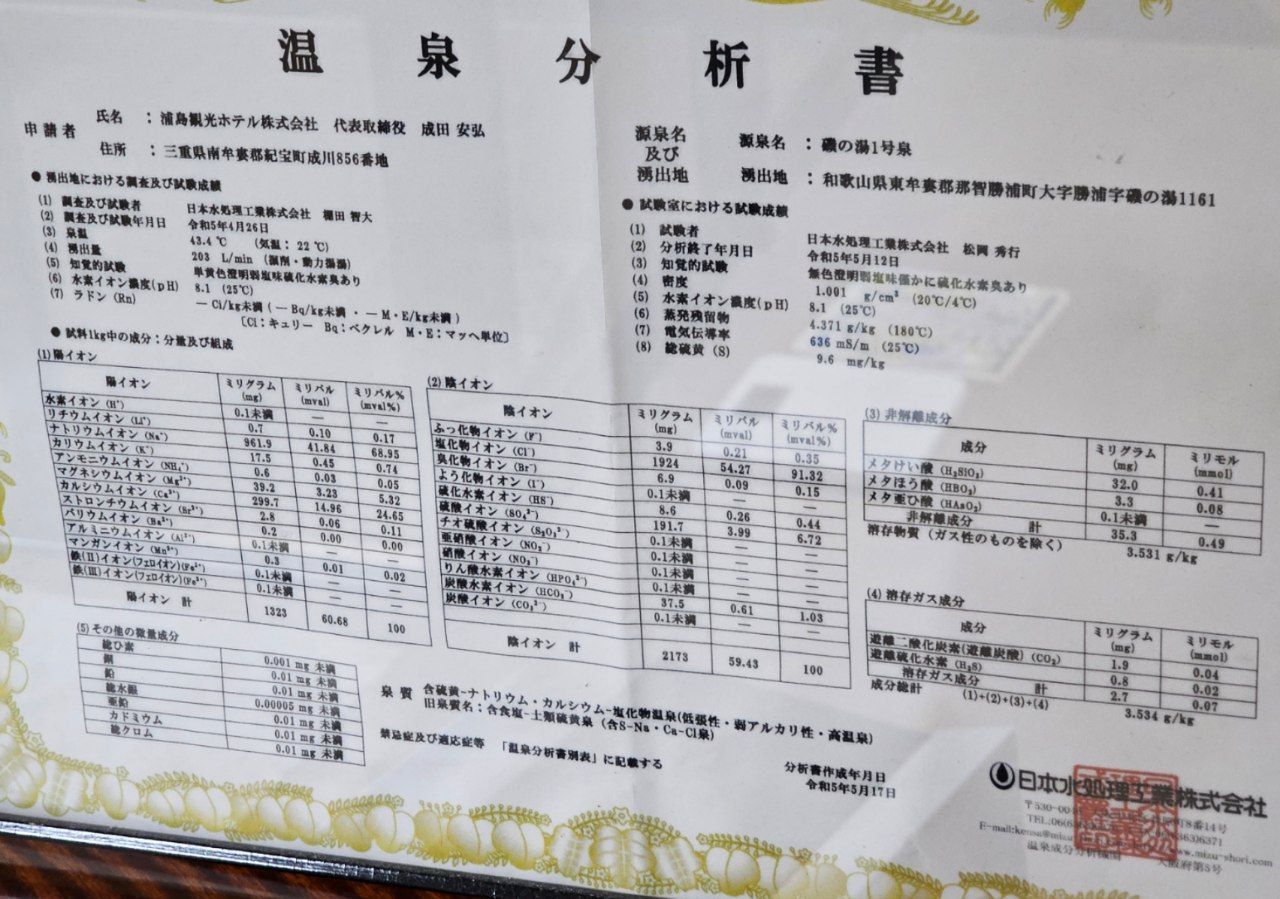 温泉分析書
申請者
氏名 ： 浦島観光ホテル株式会社 代表取締役 成田 安弘
住所 ： 三重県南牟婁郡紀宝町成川856番地
源泉名
及び
湧出地
源泉名 ： 磯の湯1号泉
湧出地 ： 和歌山県東牟婁郡那智勝浦町大字勝浦字磯の湯1161
● 湧出地における調査及び試験成績
(1) 調査及び試験者 日本水処理工業株式会社 棚田 智大
(2) 調査及び試験年月日 令和5年4月26日
(3) 泉温 43.4 ℃ (気温： 22 ℃)
(4) 湧出量 203 L/min (掘削・動力揚湯)
(5) 知覚的試験 単黄色澄明弱塩味硫化水素臭あり
(6) 水素イオン濃度(pH) 8.1 (25℃)
(7) ラドン (Rn) ― Ci/kg未満 ( ― Bq/kg未満 ・ ― M・E/kg未満 )
〔Ci：キュリー Bq：ベクレル M・E：マッヘ単位〕
● 試験室における試験成績
(1) 試験者 日本水処理工業株式会社 松岡 秀行
(2) 分析終了年月日 令和5年5月12日
(3) 知覚的試験 無色澄明弱塩味僅かに硫化水素臭あり
(4) 密度 1.001 g/cm³ (20℃/4℃)
(5) 水素イオン濃度(pH) 8.1 (25℃)
(6) 蒸発残留物 4.371 g/kg (180℃)
(7) 電気伝導率 636 mS/m (25℃)
(8) 総硫黄 (S) 9.6 mg/kg
● 試料1kg中の成分：分量及び組成
(1) 陽イオン
陽イオン ミリグラム (mg) ミリバル (mval) ミリバル% (mval%)
水素イオン (H⁺) 0.1未満 ― ―
リチウムイオン (Li⁺) 0.7 0.10 0.17
ナトリウムイオン (Na⁺) 961.9 41.84 68.95
カリウムイオン (K⁺) 17.5 0.45 0.74
アンモニウムイオン (NH₄⁺) 0.6 0.03 0.05
マグネシウムイオン (Mg²⁺) 39.2 3.23 5.32
カルシウムイオン (Ca²⁺) 299.7 14.96 24.65
ストロンチウムイオン (Sr²⁺) 2.8 0.06 0.11
バリウムイオン (Ba²⁺) 0.2 0.00 0.00
アルミニウムイオン (Al³⁺) 0.1未満 ― ―
マンガンイオン (Mn²⁺) 0.3 0.01 0.02
鉄(Ⅱ)イオン(フェロイオン)(Fe²⁺) 0.1未満 ― ―
鉄(Ⅲ)イオン(フェロイオン)(Fe³⁺) 0.1未満 ― ―
陽イオン 計 1323 60.68 100
(2) 陰イオン
陰イオン ミリグラム (mg) ミリバル (mval) ミリバル% (mval%)
ふっ化物イオン (F⁻) 3.9 0.21 0.35
塩化物イオン (Cl⁻) 1924 54.27 91.32
臭化物イオン (Br⁻) 6.9 0.09 0.15
よう化物イオン (I⁻) 0.1未満 ― ―
硫化水素イオン (HS⁻) 8.6 0.26 0.44
硫酸イオン (SO₄²⁻) 191.7 3.99 6.72
チオ硫酸イオン (S₂O₃²⁻) 0.1未満 ― ―
亜硝酸イオン (NO₂⁻) 0.1未満 ― ―
硝酸イオン (NO₃⁻) 0.1未満 ― ―
りん酸水素イオン (HPO₄²⁻) 0.1未満 ― ―
炭酸水素イオン (HCO₃⁻) 37.5 0.61 1.03
炭酸イオン (CO₃²⁻) 0.1未満 ― ―
陰イオン 計 2173 59.43 100
(3) 非解離成分
成分 ミリグラム (mg) ミリモル (mmol)
メタけい酸 (H₂SiO₃) 32.0 0.41
メタほう酸 (HBO₂) 3.3 0.08
メタ亜ひ酸 (HAsO₂) 0.1未満 ―
非解離成分 計 35.3 0.49
溶存物質 (ガス性のものを除く) 3.531 g/kg
(4) 溶存ガス成分
成分 ミリグラム (mg) ミリモル (mmol)
遊離二酸化炭素(遊離炭酸) (CO₂) 1.9 0.04
遊離硫化水素 (H₂S) 0.8 0.02
溶存ガス成分 計 2.7 0.07
成分総計 (1)+(2)+(3)+(4) 3.534 g/kg
(5) その他の微量成分
総ひ素 0.001 mg 未満
銅 0.01 mg 未満
鉛 0.01 mg 未満
総水銀 0.00005 mg 未満
亜鉛 0.01 mg 未満
カドミウム 0.01 mg 未満
総クロム 0.01 mg 未満
泉質 含硫黄-ナトリウム・カルシウム-塩化物温泉(低張性・弱アルカリ性・高温泉)
旧泉質名：含食塩-土類硫黄泉 (含S-Na・Ca-Cl泉)
禁忌症及び適応症等 「温泉分析書別表」に記載する
分析書作成年月日
令和5年5月17日
日本水処理工業株式会社
〒530-00
8番14号
TEL.06(6
)6371
E-mail:kensa@mizu
www.mizu-shori.com
温泉成分分析機関 大阪府第5号